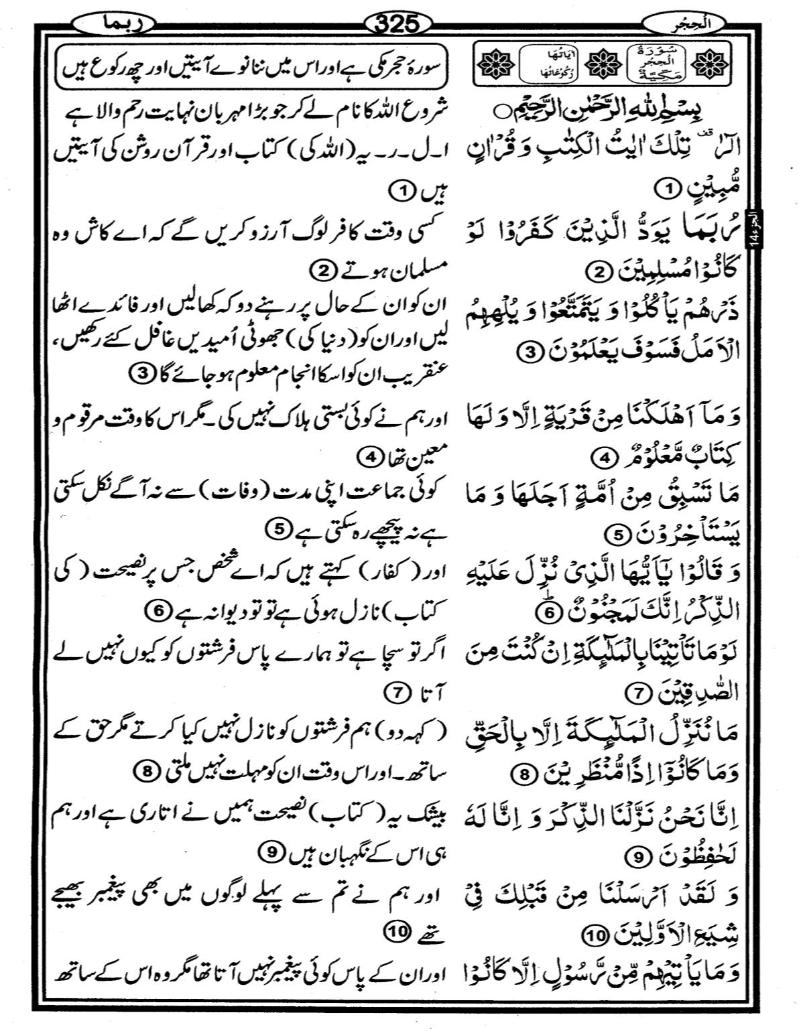 الْحِجْر
325
رُبَمَا
سُوْرَةُ
الْحِجْرِ
مَكِّيَّةٌ
اٰيَاتُهَا
رُكُوْعَاتُهَا
سورۂ حجر مکی ہے اور اس میں ننانوے آیتیں اور چھ رکوع ہیں
الجزء 14
بِسْمِ اللّٰهِ الرَّحْمٰنِ الرَّحِيْمِ
الٓرٰ ۚ قف تِلْكَ اٰيٰتُ الْكِتٰبِ وَ قُرْاٰنٍ
مُّبِيْنٍ 1
رُبَمَا يَوَدُّ الَّذِيْنَ كَفَرُوْا لَوْ
كَانُوْا مُسْلِمِيْنَ 2
ذَرْهُمْ يَاْكُلُوْا وَ يَتَمَتَّعُوْا وَ يُلْهِهِمُ
الْاَمَلُ فَسَوْفَ يَعْلَمُوْنَ 3
وَ مَاۤ اَهْلَكْنَا مِنْ قَرْيَةٍ اِلَّا وَ لَهَا
كِتَابٌ مَّعْلُوْمٌ 4
مَا تَسْبِقُ مِنْ اُمَّةٍ اَجَلَهَا وَ مَا
يَسْتَاْخِرُوْنَ 5
وَ قَالُوْا يٰۤاَيُّهَا الَّذِيْ نُزِّلَ عَلَيْهِ
الذِّكْرُ اِنَّكَ لَمَجْنُوْنٌ ؕ 6
لَوْ مَا تَاْتِيْنَا بِالْمَلٰٓىِٕكَةِ اِنْ كُنْتَ مِنَ
الصّٰدِقِيْنَ 7
مَا نُنَزِّلُ الْمَلٰٓىِٕكَةَ اِلَّا بِالْحَقِّ
وَ مَا كَانُوْۤا اِذًا مُّنْظَرِيْنَ 8
اِنَّا نَحْنُ نَزَّلْنَا الذِّكْرَ وَ اِنَّا لَهٗ
لَحٰفِظُوْنَ 9
وَ لَقَدْ اَرْسَلْنَا مِنْ قَبْلِكَ فِيْ
شِيَعِ الْاَوَّلِيْنَ 10
وَ مَا يَاْتِيْهِمْ مِّنْ رَّسُوْلٍ اِلَّا كَانُوْا
شروع اللہ کا نام لے کر جو بڑا مہربان نہایت رحم والا ہے
ا۔ل۔ر۔ یہ (اللہ کی) کتاب اور قرآن روشن کی آیتیں
ہیں 1
کسی وقت کافر لوگ آرزو کریں گے کہ اے کاش وہ
مسلمان ہوتے 2
ان کو ان کے حال پر رہنے دو کہ کھا لیں اور فائدے اٹھا
لیں اور ان کو (دنیا کی) جھوٹی اُمیدیں غافل کئے رکھیں،
عنقریب ان کو اسکا انجام معلوم ہو جائے گا 3
اور ہم نے کوئی بستی ہلاک نہیں کی۔ مگر اس کا وقت مرقوم و
معین تھا 4
کوئی جماعت اپنی مدت (وفات) سے نہ آگے نکل سکتی
ہے نہ پیچھے رہ سکتی ہے 5
اور (کفار) کہتے ہیں کہ اے شخص جس پر نصیحت (کی
کتاب) نازل ہوئی ہے تو تو دیوانہ ہے 6
اگر تو سچا ہے تو ہمارے پاس فرشتوں کو کیوں نہیں لے
آتا 7
(کہہ دو) ہم فرشتوں کو نازل نہیں کیا کرتے مگر حق کے
ساتھ۔ اور اس وقت ان کو مہلت نہیں ملتی 8
بیشک یہ (کتاب) نصیحت ہمیں نے اتاری ہے اور ہم
ہی اس کے نگہبان ہیں 9
اور ہم نے تم سے پہلے لوگوں میں بھی پیغمبر بھیجے
تھے 10
اور ان کے پاس کوئی پیغمبر نہیں آتا تھا مگر وہ اس کے ساتھ